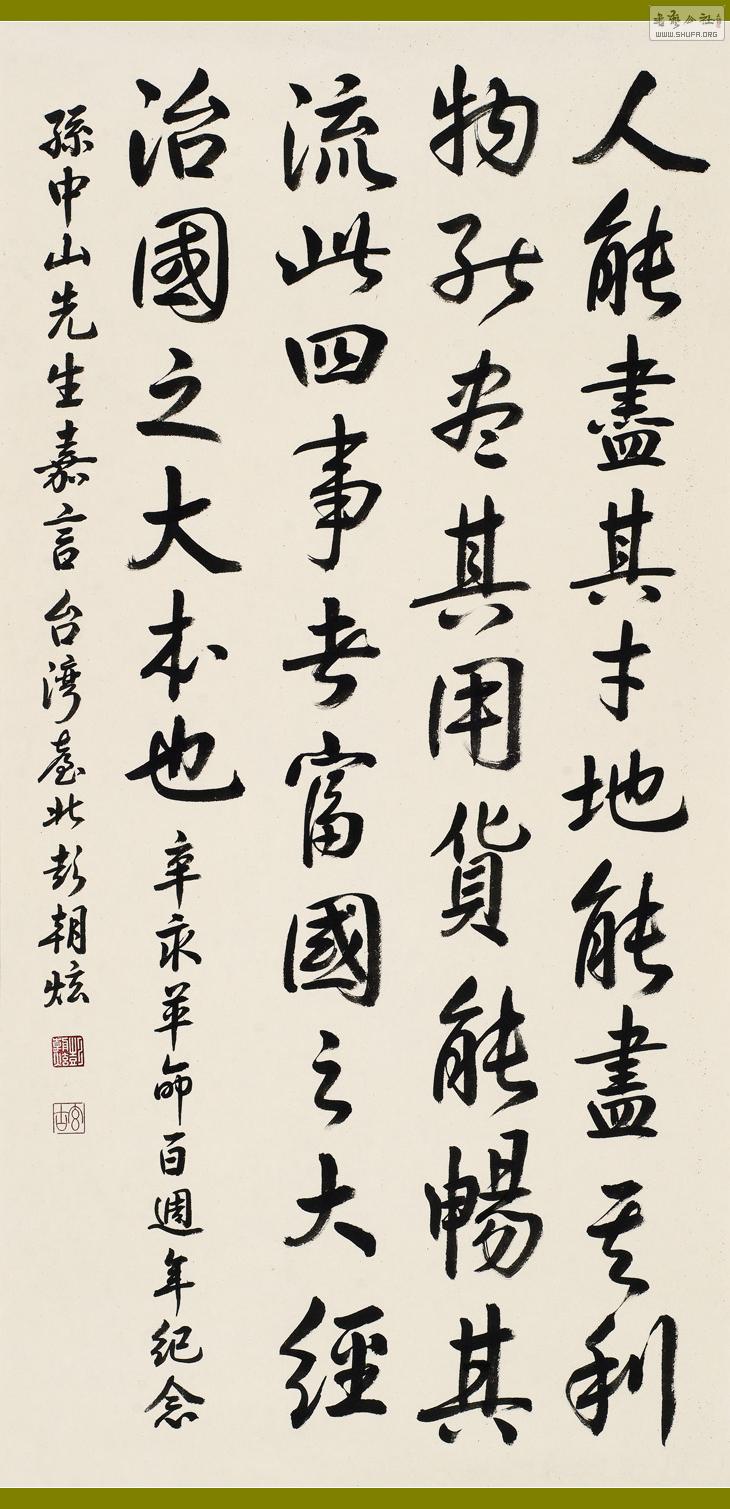 人能盡其才地能盡其利
物能盡其用貨能暢其
流此四事者富國之大經
治國之大本也
辛亥革命百週年紀念
孫中山先生嘉言 台湾臺北彭朝炫
彭朝炫
WWW.SHUFA.ORG